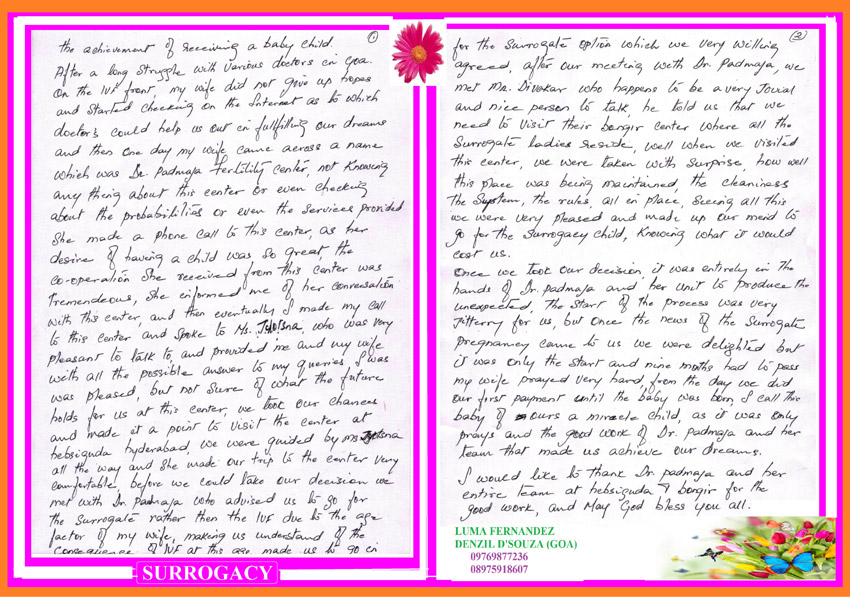 ①
the achievement of receiving a baby child.
After a long struggle with various doctors in Goa.
On the IVF front, my wife did not give up hopes
and started checking on the Internet as to which
doctors could help us out in fullfilling our dreams
and then one day my wife came across a name
which was Dr. Padmaja fertility center, not knowing
any thing about this center or even checking
about the probabilities or even the services provided
She made a phone call to this center, as her
desire of having a child was so great, the
co-operation she received from this center was
tremendeous, she informed me of her conversation
with this center, and then eventually I made my call
to this center and spoke to Ms. Jyotsna, who was very
pleasant to talk to, and provided me and my wife
with all the possible answer to my queries, I was
was pleased, but not sure of what the future
holds for us at this center, we took our chances
and made it a point to visit the center at
hebsiguda hyderabad, we were guided by ms Jyotsna
all the way and she made our trip to the center very
comfortable, before we could take our decision we
met with Dr. Padmaja who advised us to go for
the surrogate rather then the IVF due to the age
factor of my wife, making us understand of the
consequence of IVF at this age made us to go in
②
for the surrogate option which we very willing
agreed, after our meeting with Dr. Padmaja, we
met Mr. Divakar who happens to be a very Jovial
and nice person to talk, he told us that we
need to visit their bongir center where all the
surrogate ladies reside, well when we visited
this center, we were taken with surprise, how well
this place was being maintained, the cleaniness
The System, the rules, all in place, seeing all this
we were very pleased and made up our mind to
go for the surrogacy child, knowing what it would
cost us.
Once we took our decision, it was entirely in the
hands of Dr. padmaja and her unit to produce the
unexpected, the start of the process was very
Jitterry for us, but once the news of the surrogate
pregnancy came to us we were delighted but
it was only the start and nine months had to pass
my wife prayed very hard, from the day we did
our first payment until the baby was born, I call this
baby of ours a miracle child, as it was only
prays and the good work of Dr. Padmaja and her
team that made us achieve our dreams.
I would like to thank Dr. padmaja and her
entire team at hebsiguda & bongir for the
good work, and May God bless you all.
LUMA FERNANDEZ
DENZIL D'SOUZA (GOA)
09769877236
08975918607
SURROGACY